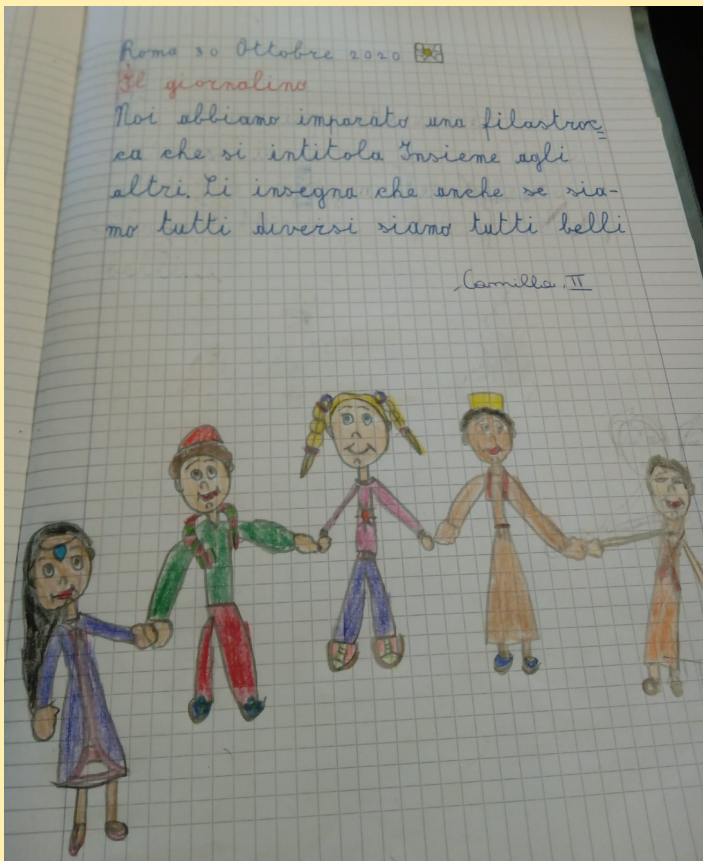 Roma 30 Ottobre 2020
Il giornalino
Noi abbiamo imparato una filastroc=
ca che si intitola Insieme agli
altri. Ci insegna che anche se sia-
mo tutti diversi siamo tutti belli
Camilla. II